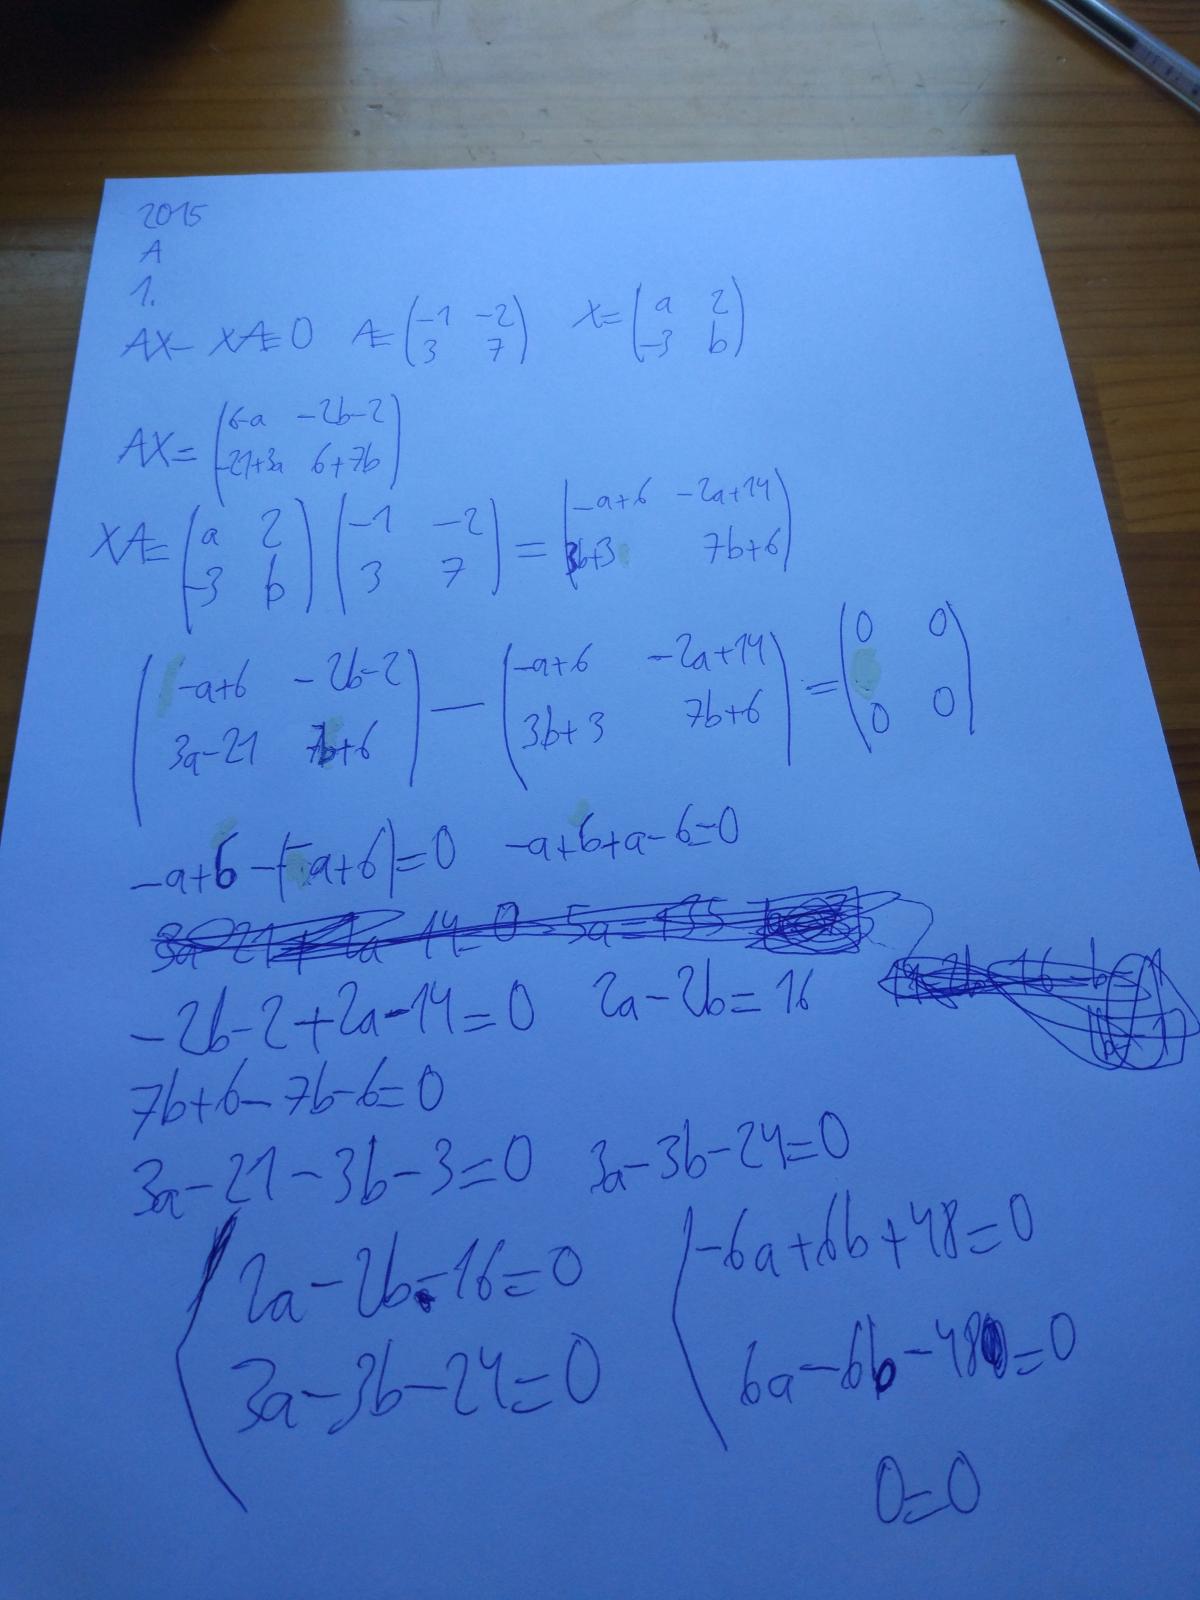 2015
A
1.
AX - XA = 0 A = (-1 -2
3 7) X = (a 2
-3 b)
AX = (6-a -2b-2
-21+3a 6+7b)
XA = (a 2
-3 b) (-1 -2
3 7) = (-a+6 -2a+14
3b+3 7b+6)
(-a+6 -2b-2
3a-21 7b+6) - (-a+6 -2a+14
3b+3 7b+6) = (0 0
0 0)
-a+6-(-a+6)=0 -a+6+a-6=0
-2b-2+2a-14=0 2a-2b=16
7b+6-7b-6=0
3a-21-3b-3=0 3a-3b-24=0
2a-2b-16=0 -6a+6b+48=0
3a-3b-24=0 6a-6b-48=0
0=0